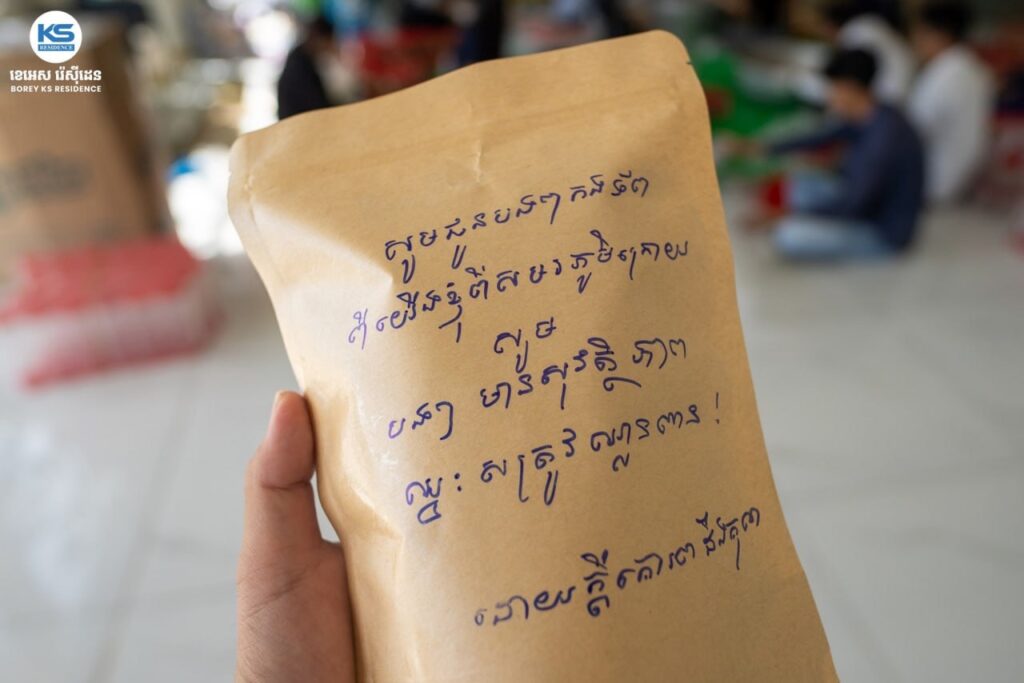 KS
RESIDENCE
ខេអេស រ៉េស៊ីដេន
BOREY KS RESIDENCE
សូមជូនបងៗកងទ័ព
ពីយើងខ្ញុំពីសមរភូមិក្រោយ
សូម
បងៗ មានសុវត្ថិភាព
ឈ្នះសត្រូវឈ្លានពាន!
ដោយក្តីគោរពដឹងគុណ